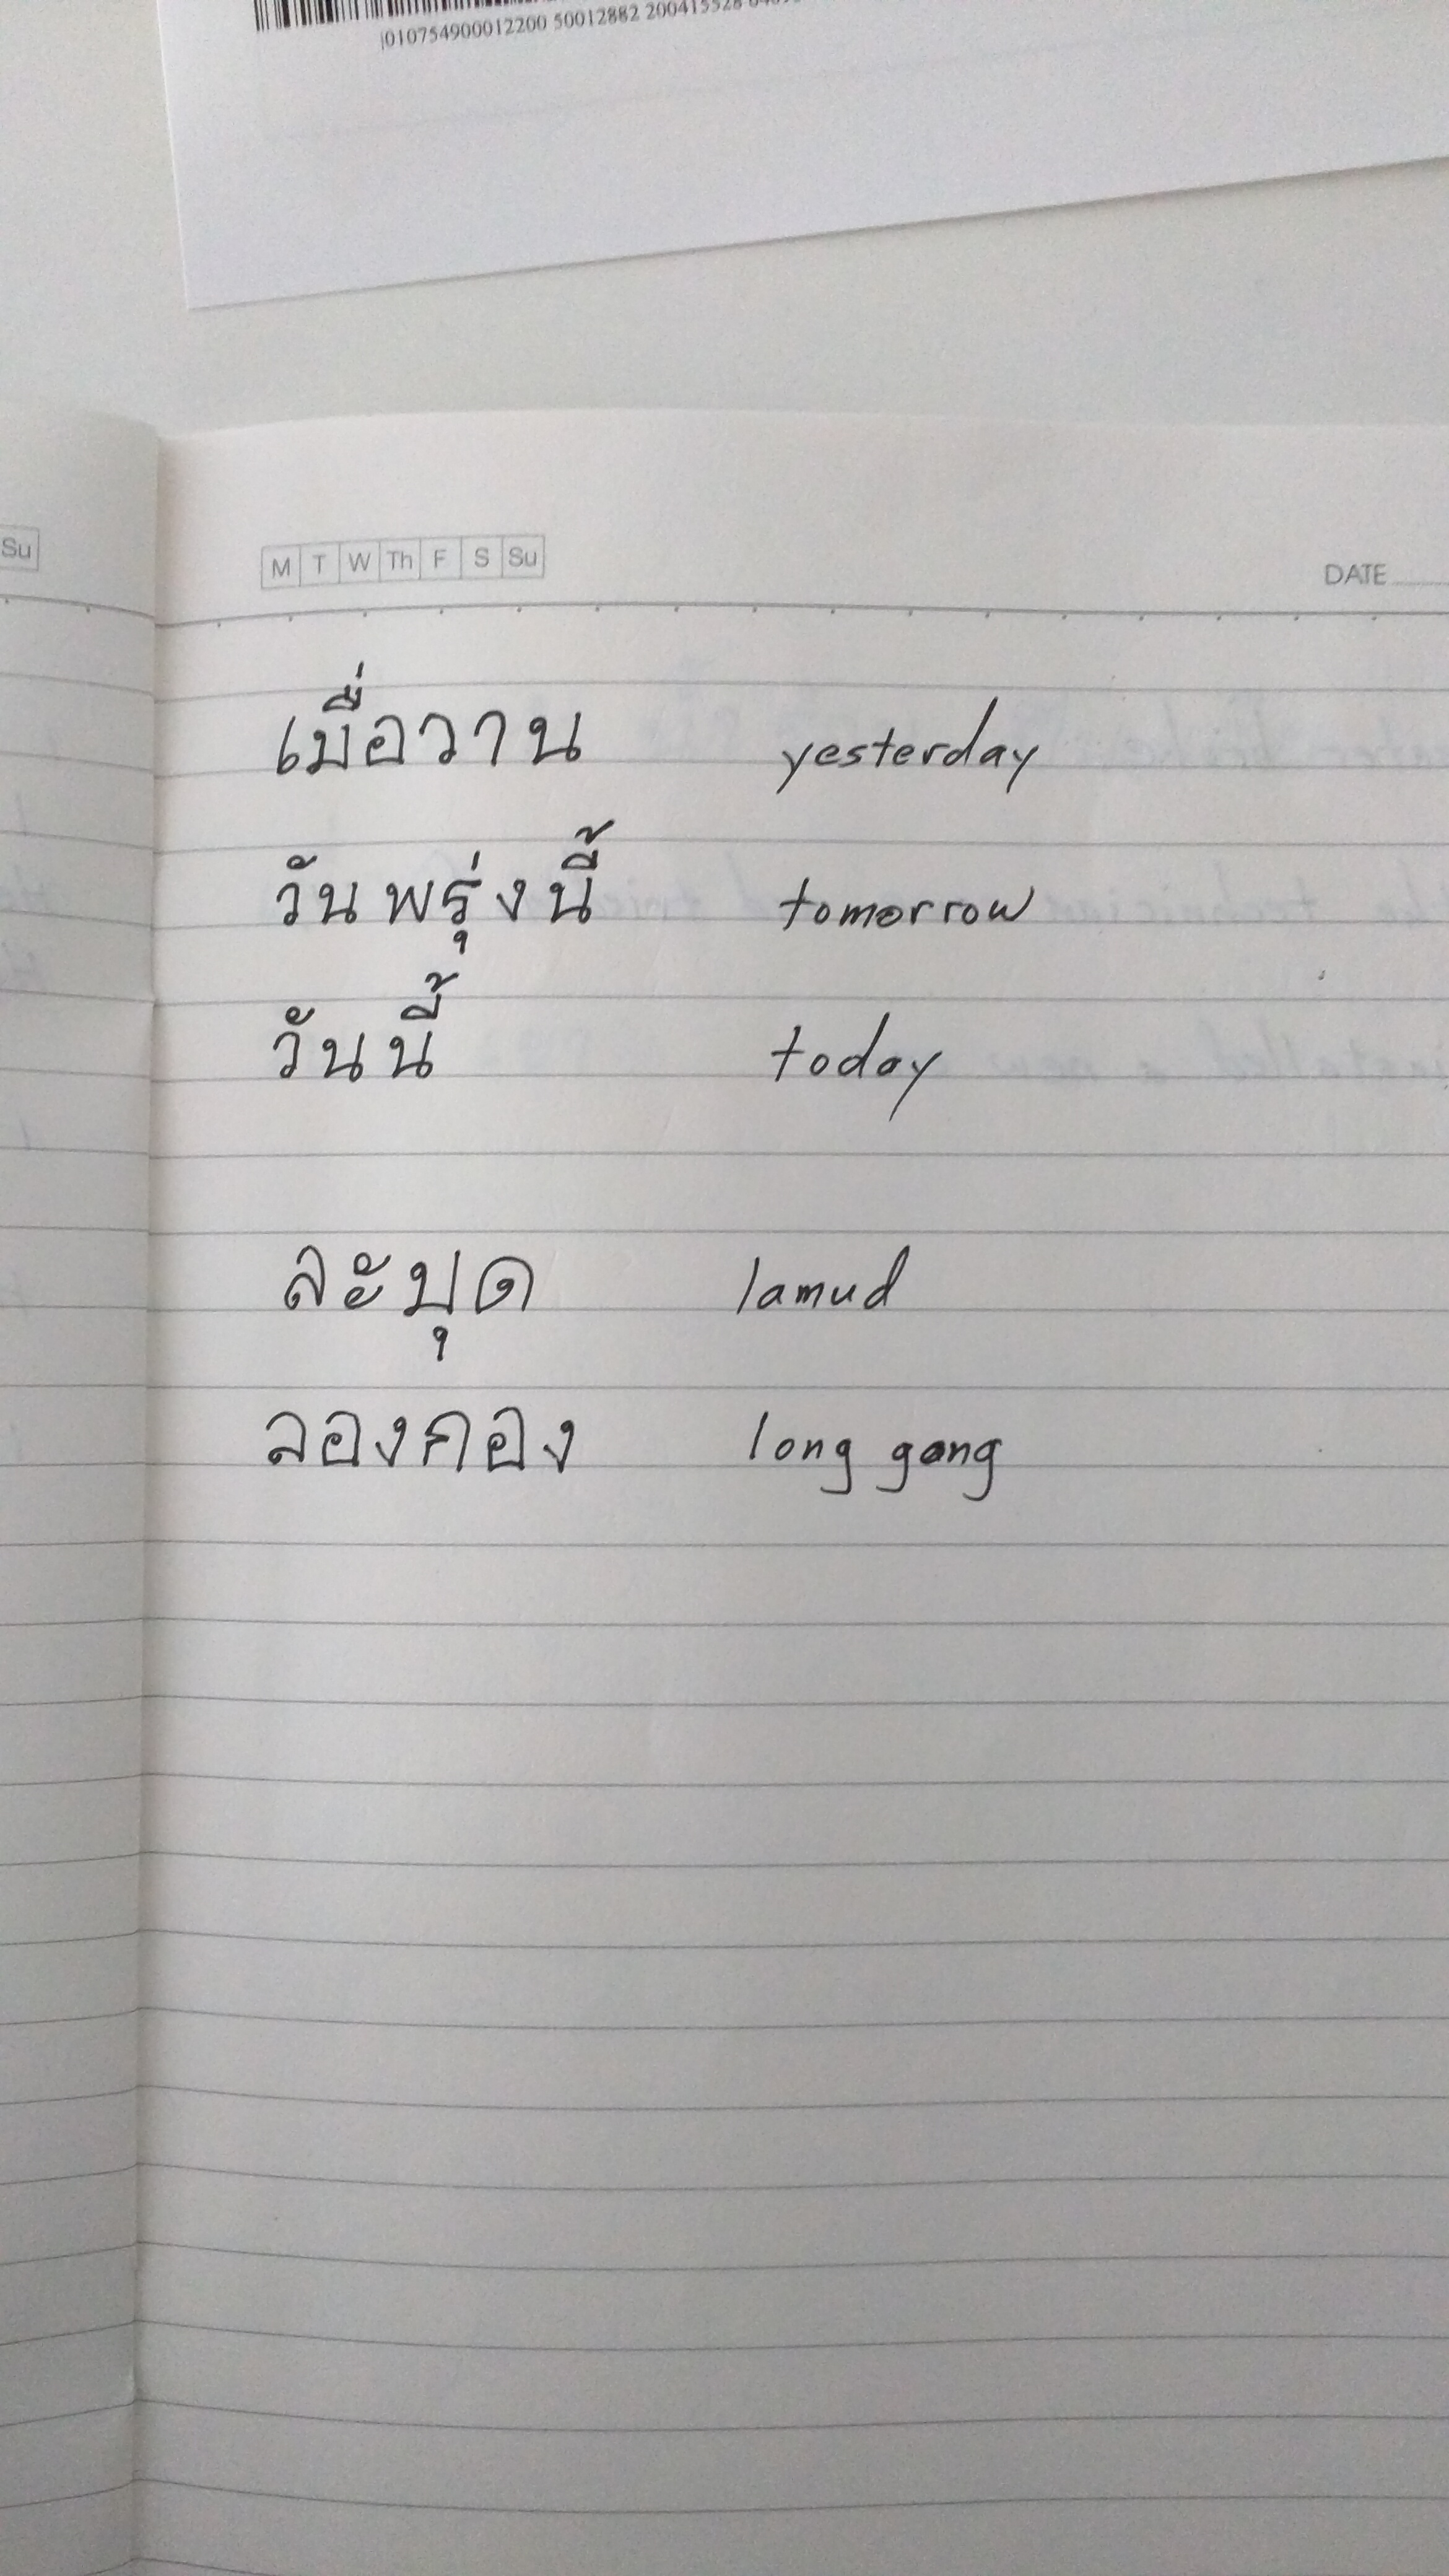 |010754900012200 50012882 200415528
Su
M T W Th F S Su
DATE
เมื่อวาน yesterday
วันพรุ่งนี้ tomorrow
วันนี้ today
ละมุด lamud
ลองกอง long gong